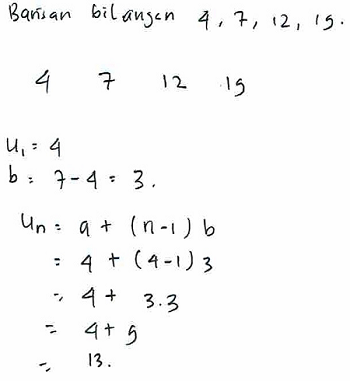 Barisan bilangan 4, 7, 12, 19.
4 7 12 19
U₁ = 4
b = 7 - 4 = 3.
Un = a + (n-1) b
= 4 + (4-1) 3
= 4 + 3.3
= 4 + 9
= 13.